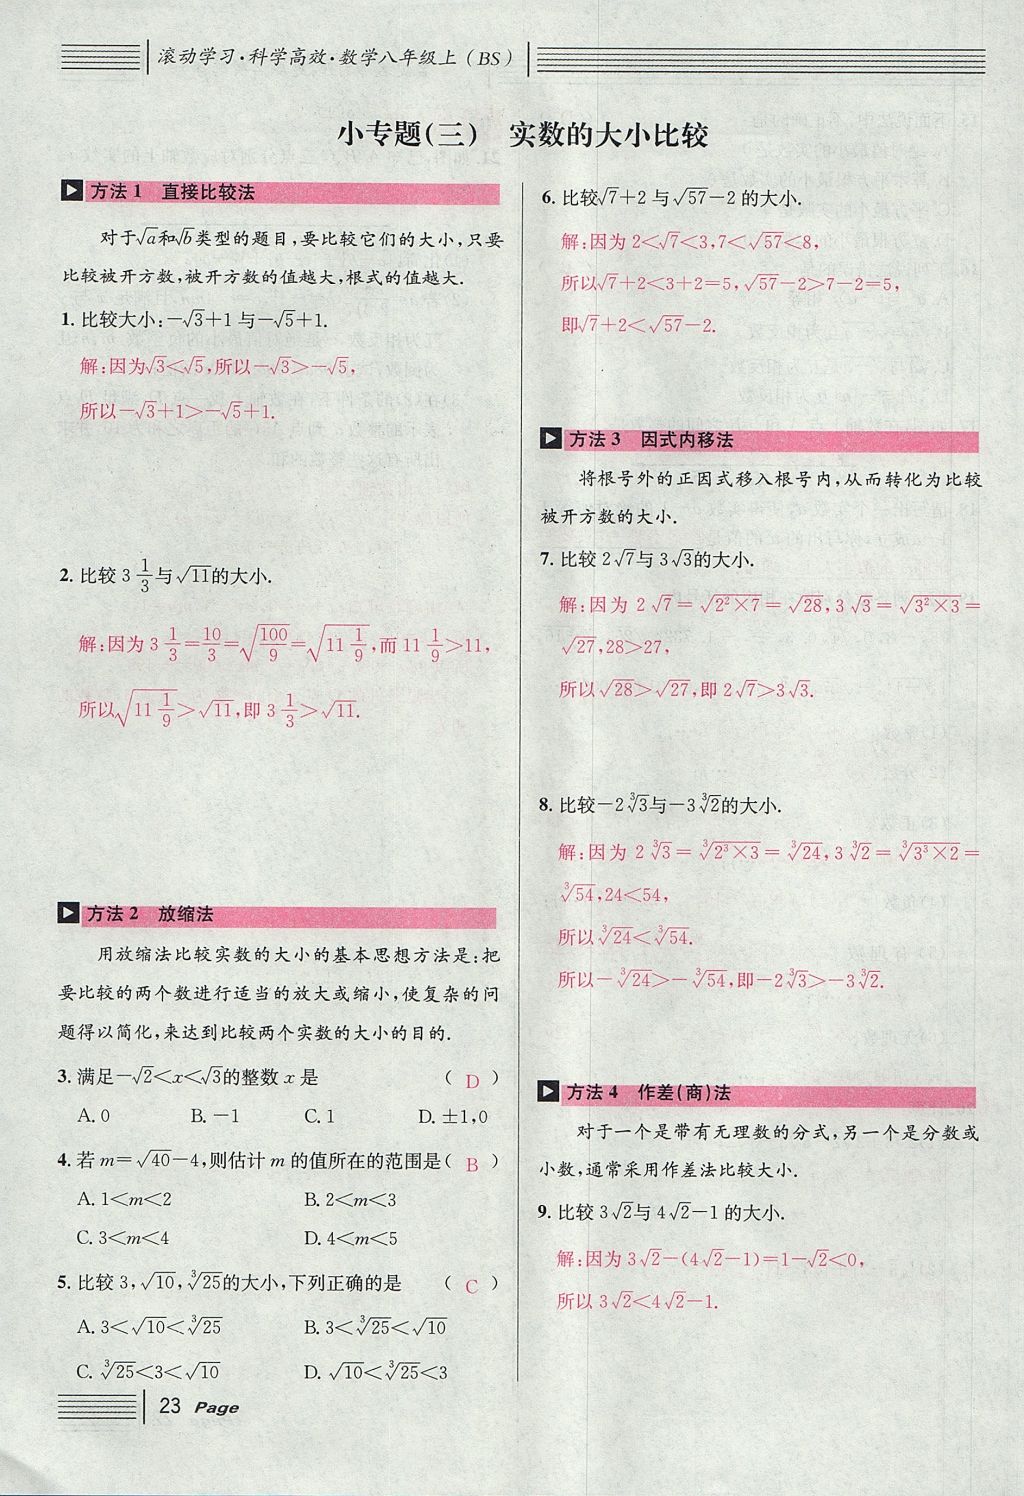 滚动学习·科学高效·数学八年级上(BS)
小专题(三) 实数的大小比较
方法1 直接比较法
对于√a和√b类型的题目,要比较它们的大小,只要
比较被开方数,被开方数的值越大,根式的值越大.
1. 比较大小:-√3+1与-√5+1.
解:因为√3<√5,所以-√3>-√5,
所以-√3+1>-√5+1.
2. 比较3 1/3与√11的大小.
解:因为3 1/3=10/3=√(100/9)=√(11 1/9),而11 1/9>11,
所以√(11 1/9)>√11,即3 1/3>√11.
方法2 放缩法
用放缩法比较实数的大小的基本思想方法是:把
要比较的两个数进行适当的放大或缩小,使复杂的问
题得以简化,来达到比较两个实数的大小的目的.
3. 满足-√2<x<√3的整数x是 ( D )
A. 0 B. -1 C. 1 D. ±1,0
4. 若m=√40-4,则估计m的值所在的范围是( B )
A. 1<m<2 B. 2<m<3
C. 3<m<4 D. 4<m<5
5. 比较3,√10,∛25的大小,下列正确的是 ( C )
A. 3<√10<∛25 B. 3<∛25<√10
C. ∛25<3<√10 D. √10<∛25<3
23 Page
6. 比较√7+2与√57-2的大小.
解:因为2<√7<3,7<√57<8,
所以√7+2<3+2=5,√57-2>7-2=5,
即√7+2<√57-2.
方法3 因式内移法
将根号外的正因式移入根号内,从而转化为比较
被开方数的大小.
7. 比较2√7与3√3的大小.
解:因为2√7=√(2²×7)=√28,3√3=√(3²×3)=
√27,28>27,
所以√28>√27,即2√7>3√3.
8. 比较-2∛3与-3∛2的大小.
解:因为2∛3=∛(2³×3)=∛24,3∛2=∛(3³×2)=
∛54,24<54,
所以∛24<∛54.
所以-∛24>-∛54,即-2∛3>-3∛2.
方法4 作差(商)法
对于一个是带有无理数的分式,另一个是分数或
小数,通常采用作差法比较大小.
9. 比较3√2与4√2-1的大小.
解:因为3√2-(4√2-1)=1-√2<0,
所以3√2<4√2-1.